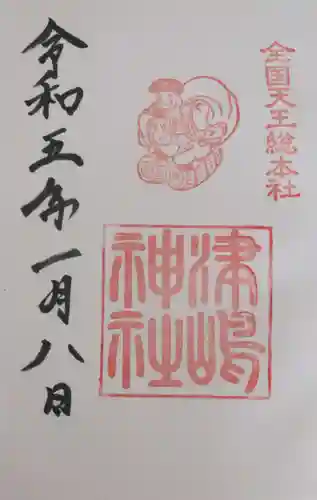 全国天王総本社
津嶋
神社
令和五年一月八日